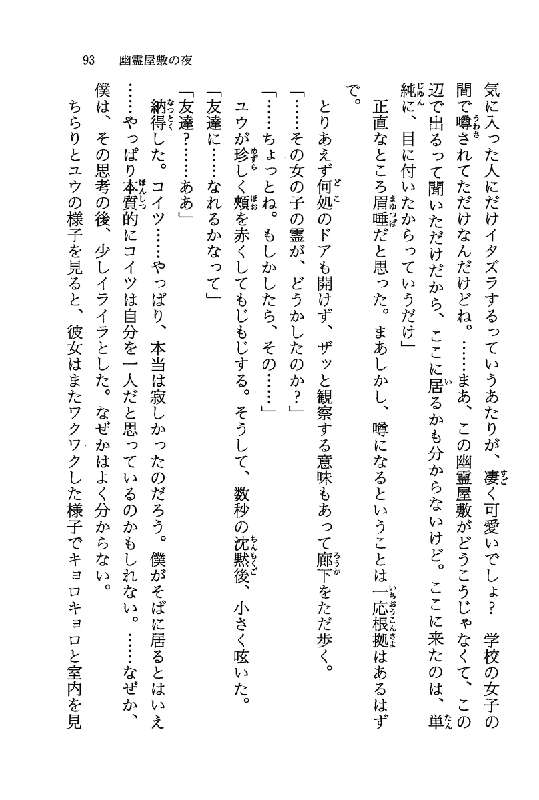 93　幽霊屋敷の夜
気に入った人にだけイタズラするっていうあたりが、凄く可愛いでしょ？　学校の女子の
間で噂されてただけなんだけどね。……まあ、この幽霊屋敷がどうこうじゃなくて、この
辺で出るって聞いただけだから、ここに居るかも分からないけど。ここに来たのは、単
純に、目に付いたからっていうだけ」
　正直なところ眉唾だと思った。まあしかし、噂になるということは一応根拠はあるはず
で。
　とりあえず何処のドアも開けず、ザッと観察する意味もあって廊下をただ歩く。
「……その女の子の霊が、どうかしたのか？」
「……ちょっとね。もしかしたら、その……」
　ユウが珍しく頬を赤くしてもじもじする。そうして、数秒の沈黙後、小さく呟いた。
「友達に……なれるかなって」
「友達？……ああ」
　納得した。コイツ……やっぱり、本当は寂しかったのだろう。僕がそばに居るとはいえ
……やっぱり本質的にコイツは自分を一人だと思っているのかもしれない。……なぜか、
僕は、その思考の後、少しイライラとした。なぜかはよく分からない。
　ちらりとユウの様子を見ると、彼女はまたワクワクした様子でキョロキョロと室内を見